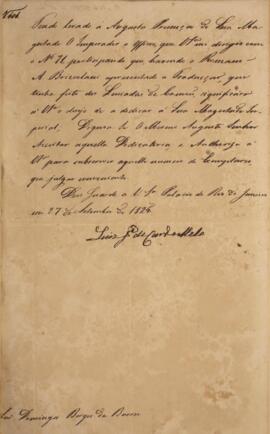 Sendo levado á Augusta Presença de Sua Ma-
gestade O Imperador o officio que Vª me dirigio com
o Nº 71 participando que havendo o Romano
A. Bressulau apresentado a traducçaõ, que
tenha feito dos Lusiadas de Camões, significára
á Vª o desejo de a dedicar á Sua Magestade Im-
perial, Dignou-se O Mesmo Augusto Senhor
Acceitar aquella Dedicatoria e Authoriza á
Vª para subscrever aquelle numero de Exemplares
que julgar conveniente.
Deos Guarde a V. Sª Palacio do Rio de Janeiro
em 27 de Setembro de 1826
Luiz Jº de Carvº e Mello
Sñr Domingos Borges de Barros